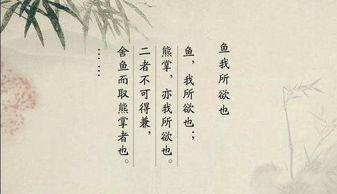 鱼我所欲也
鱼，我所欲也；
熊掌，亦我所欲也。
二者不可得兼，
舍鱼而取熊掌者也。
……